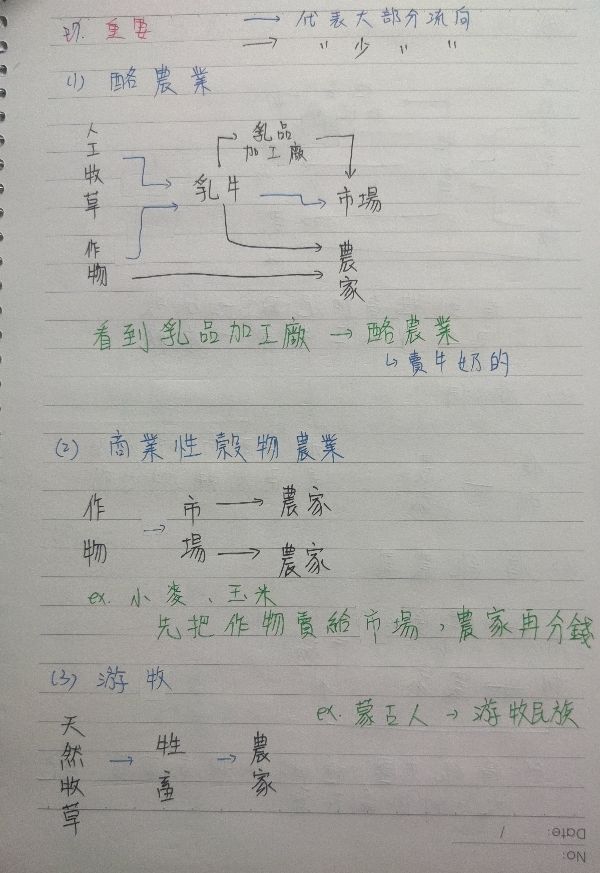 重要
→ 代表大部分流向
→ 〃 少 〃 〃
(1) 酪農業
人工牧草
作物
乳牛
乳品
加工廠
市場
農家
看到乳品加工廠 → 酪農業
↳ 賣牛奶的
(2) 商業性穀物農業
作物 → 市場 → 農家
→ 農家
ex. 小麥、玉米
先把作物賣給市場，農家再分錢
(3) 游牧
ex. 蒙古人 → 游牧民族
天然牧草 → 牲畜 → 農家
Date: /
No: